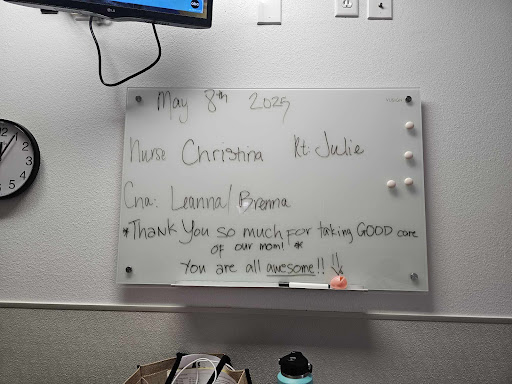 May 8th 2025
Nurse Christina Rt: Julie
Cna: Leanna/Brenna
*Thank You so much for taking GOOD care
of our mom! *
You are all awesome!!
12
1
2
3
4
5